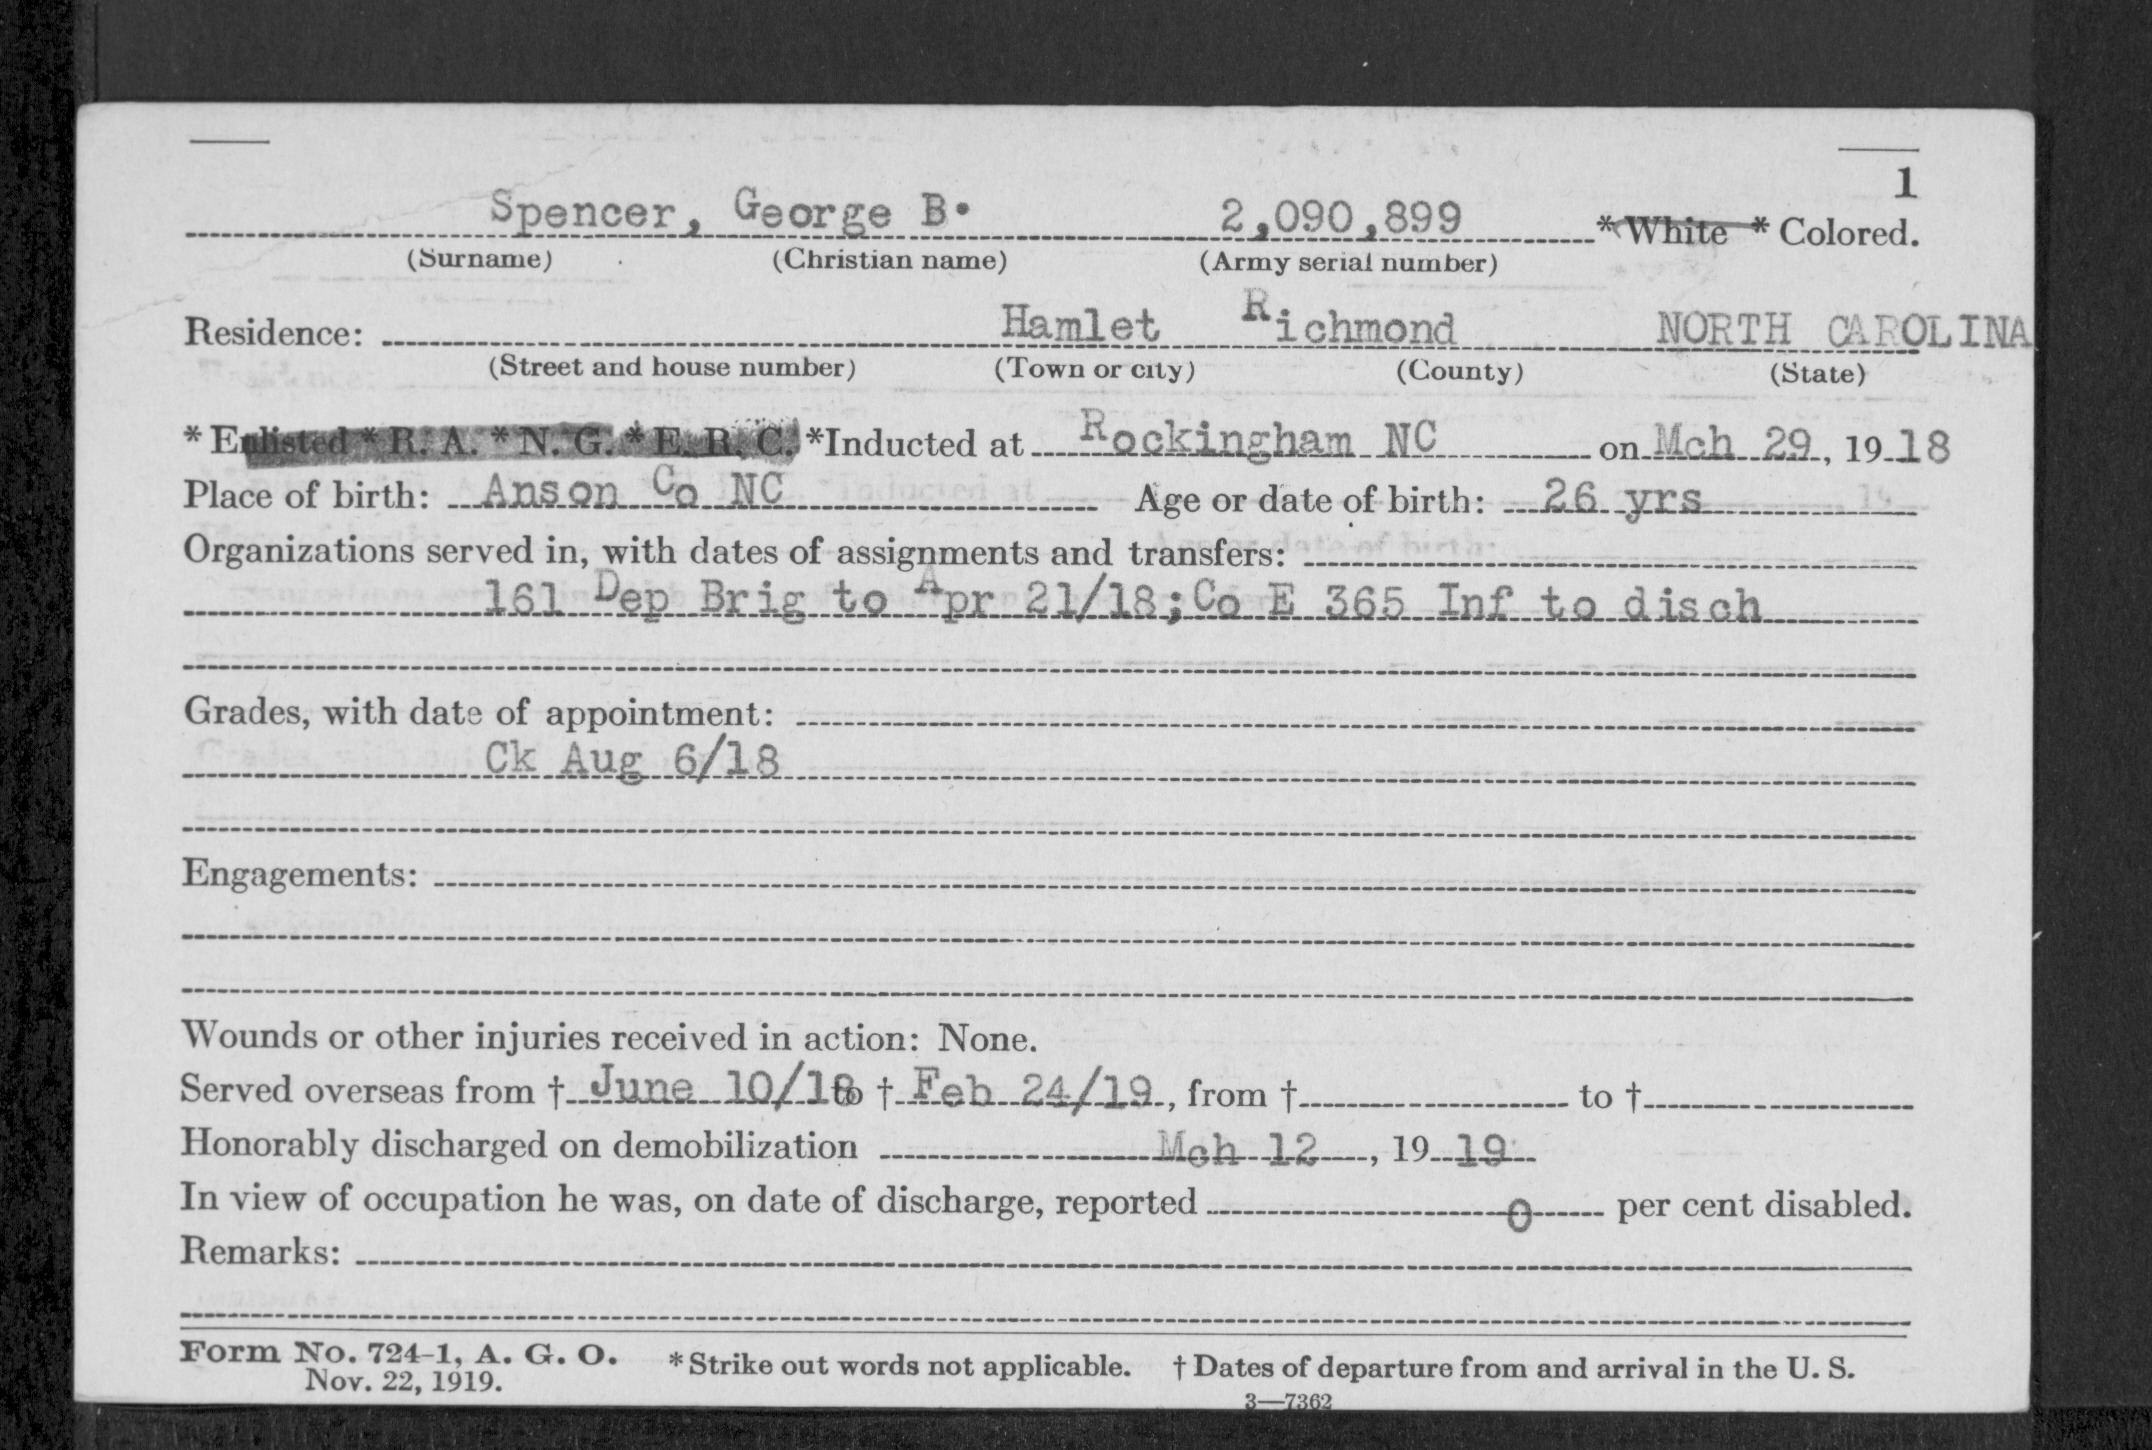 1
Spencer, George B. 2,090,899 *White * Colored.
(Surname) (Christian name) (Army serial number)
Residence: Hamlet Richmond NORTH CAROLINA
(Street and house number) (Town or city) (County) (State)
*Enlisted *R. A. *N. G. *E. R. C. *Inducted at Rockingham NC on Mch 29, 19 18
Place of birth: Anson Co NC Age or date of birth: 26 yrs
Organizations served in, with dates of assignments and transfers:
161 Dep Brig to Apr 21/18; Co E 365 Inf to disch
Grades, with date of appointment:
Ck Aug 6/18
Engagements:
Wounds or other injuries received in action: None.
Served overseas from † June 10/18 to † Feb 24/19, from † to †
Honorably discharged on demobilization Mch 12, 19 19
In view of occupation he was, on date of discharge, reported 0 per cent disabled.
Remarks:
Form No. 724-1, A. G. O. *Strike out words not applicable. † Dates of departure from and arrival in the U. S.
Nov. 22, 1919.
3—7362